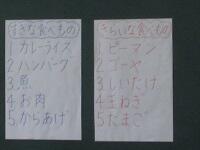 すきな食べもの
1 カレーライス
2 ハンバーグ
3.魚
4 お肉
5 からあげ
きらいな食べもの
1 ピーマン
2 ゴーヤ
3 しいたけ
4 玉ねぎ
5 たまご